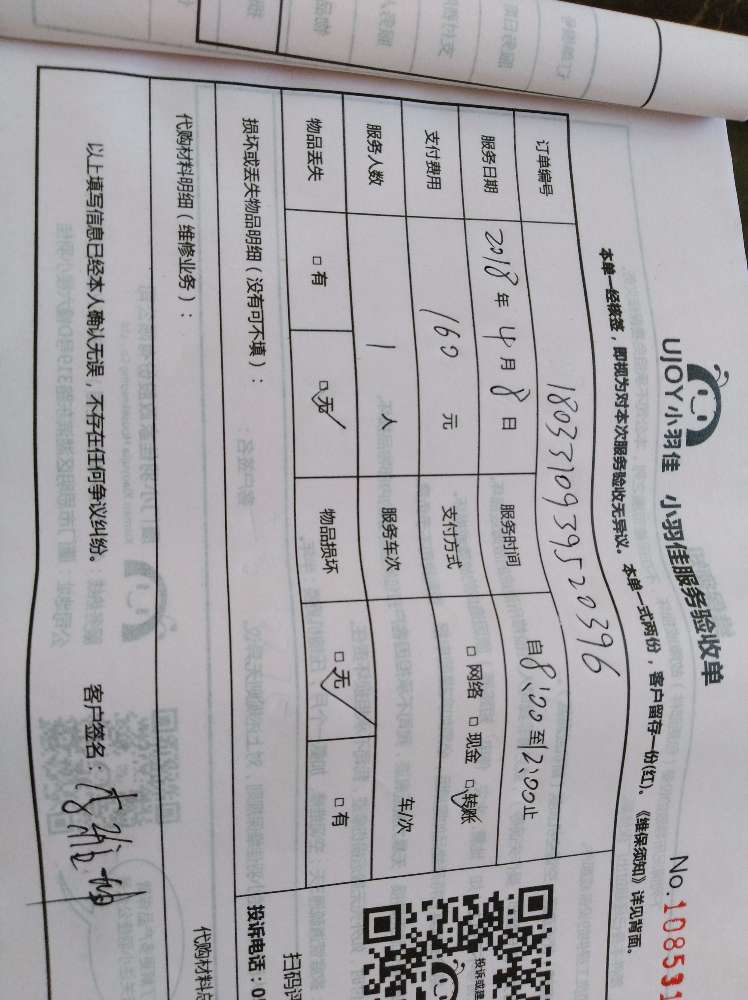 UJOY小羽佳 小羽佳服务验收单
No.108531
本单一经核签，即视为对本次服务验收无异议。 本单一式两份，客户留存一份(红)。《维保须知》详见背面。
订单编号 1803310939520396
服务日期 2018年4月8日 服务时间 自8:00至12:00止
支付费用 160元 支付方式 □网络 □现金 □转账
服务人数 1人 服务车次 车/次
物品丢失 □有 □无 物品损坏 □无 □有
损坏或丢失物品明细（没有可不填）：
代购材料明细（维修业务）：
代购材料总
以上填写信息已经本人确认无误，不存在任何争议纠纷。 客户签名：
投诉或建
扫码评
投诉电话：0